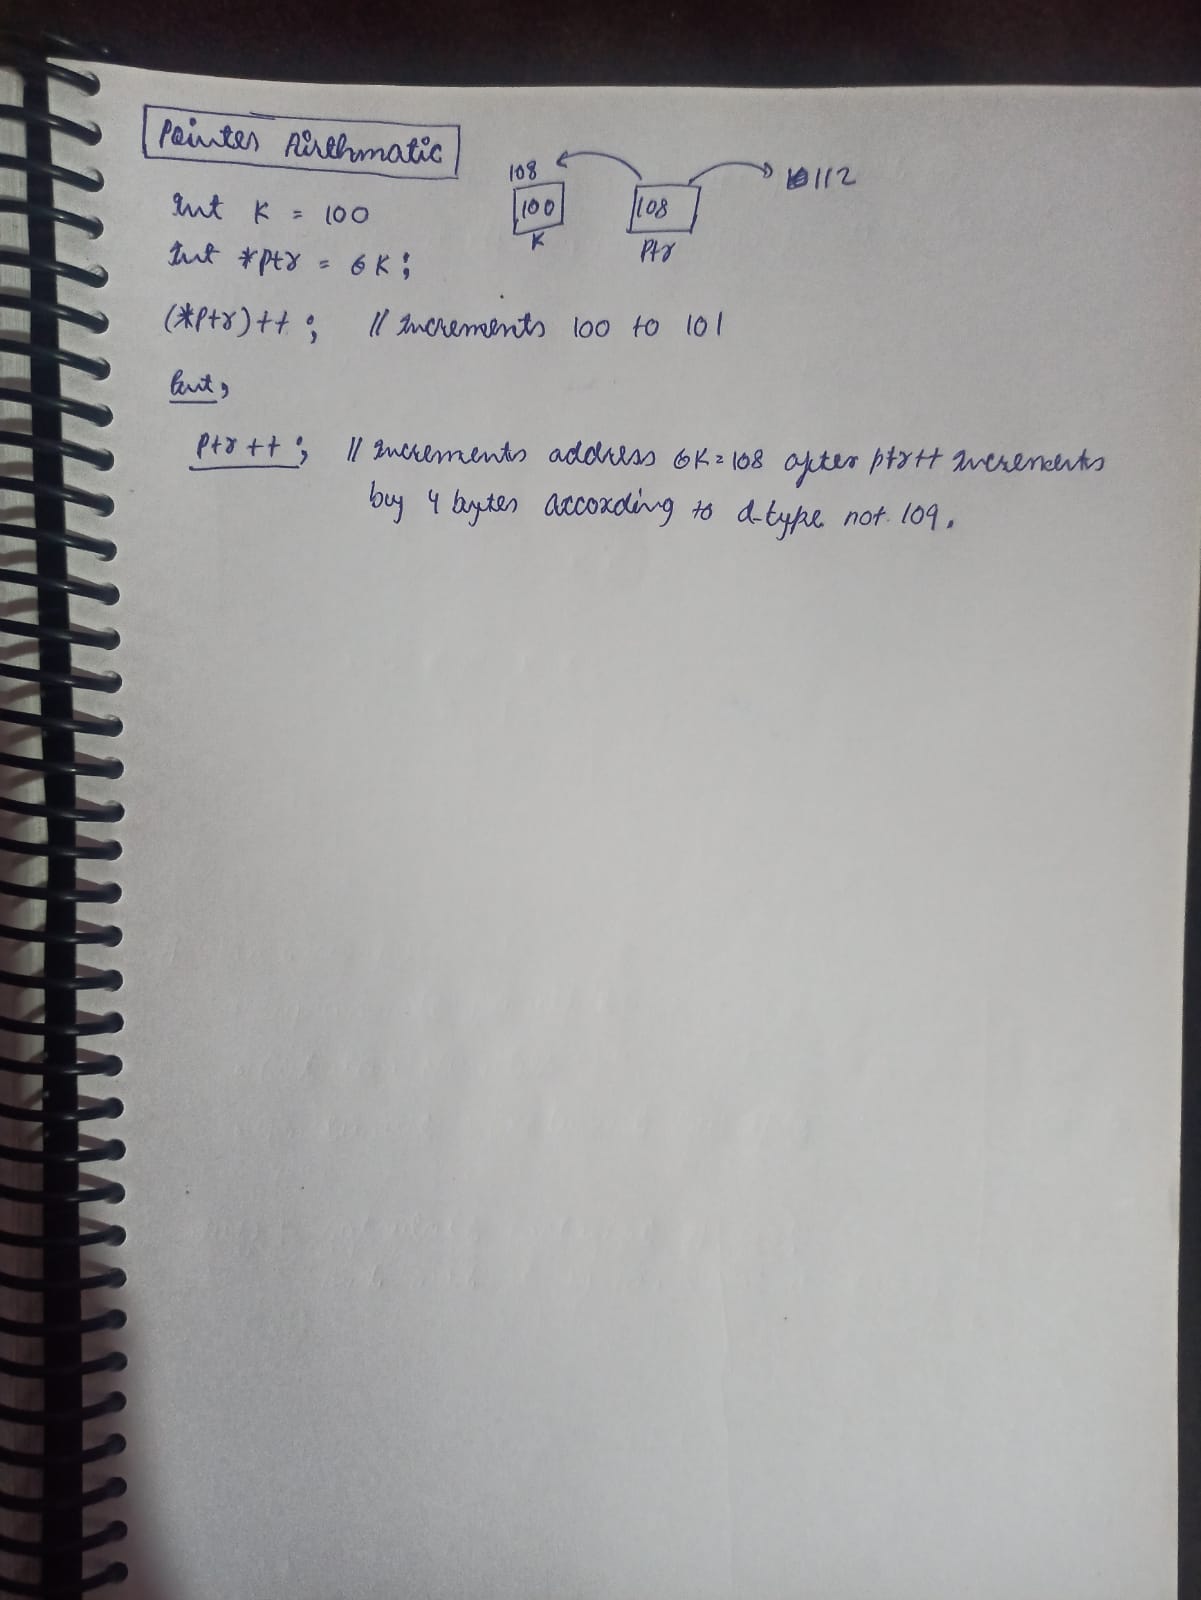 Pointer Airthmatic
108 112
int K = 100 100 108
K Ptr
int *ptr = &K;
(*ptr)++; // increments 100 to 101
but,
ptr++; // increments address &K=108 after ptr++ increments
by 4 bytes according to d-type not 109.